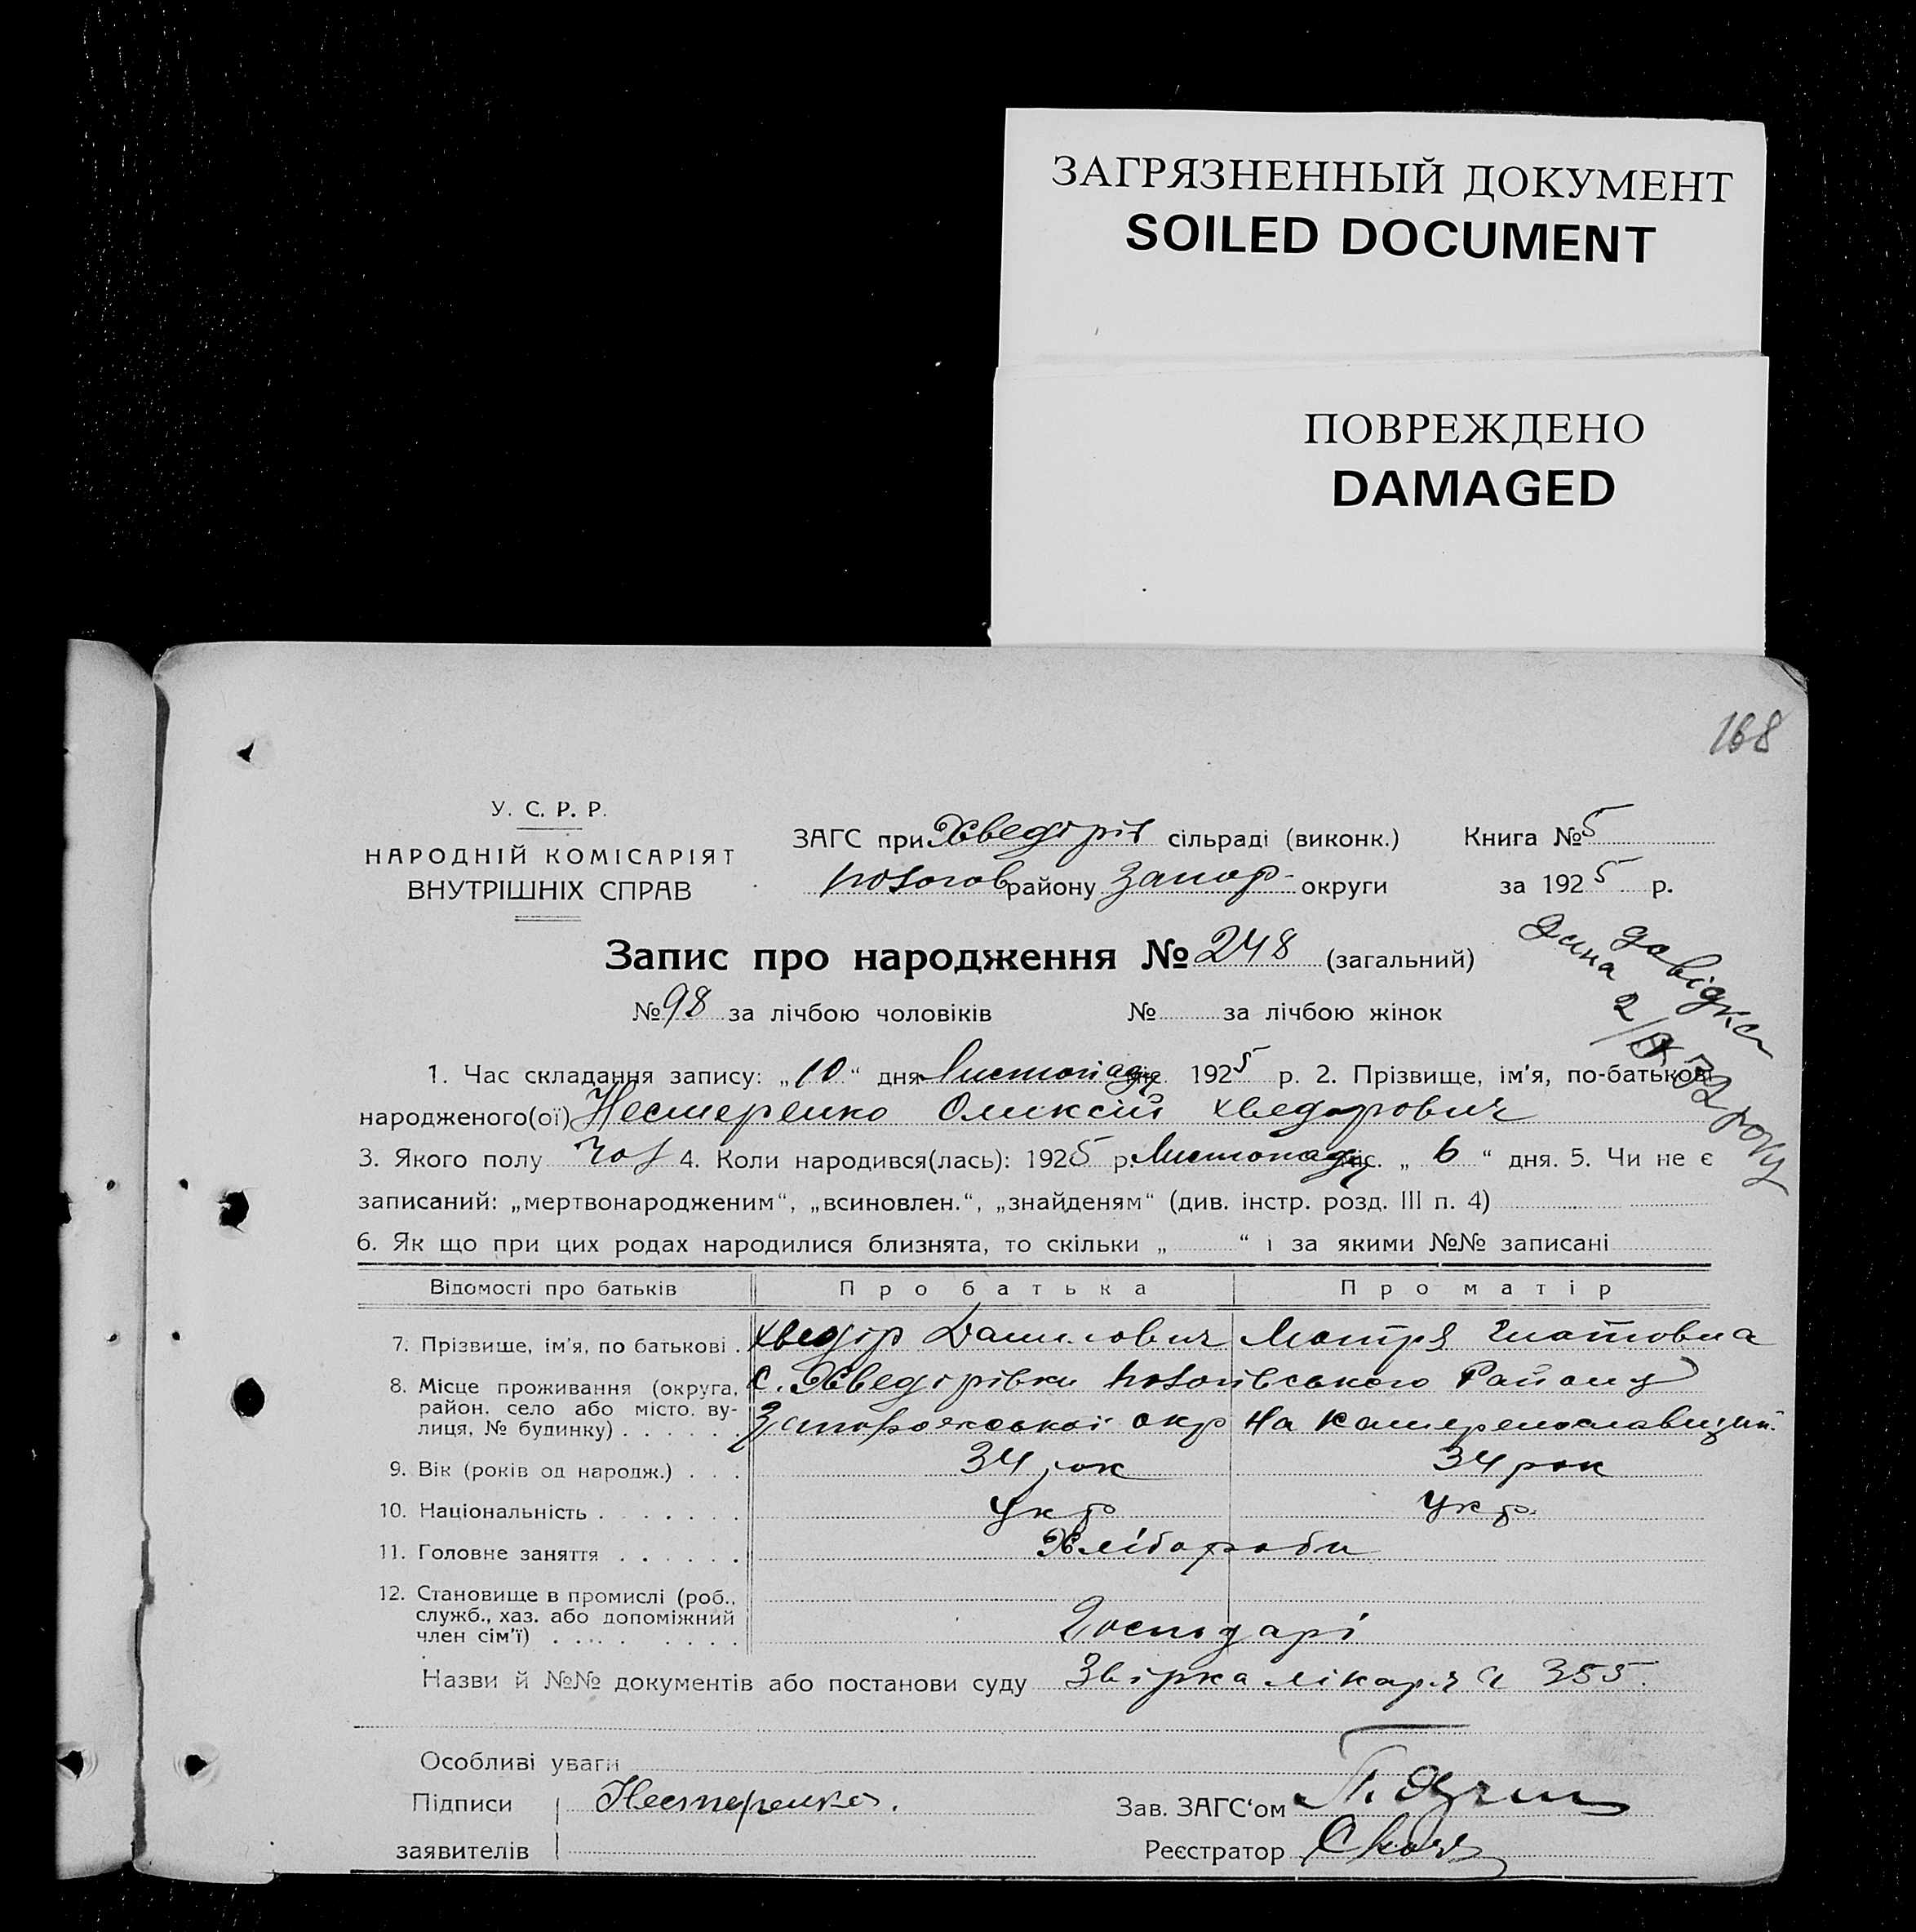 ЗАГРЯЗНЕННЫЙ ДОКУМЕНТ
SOILED DOCUMENT
ПОВРЕЖДЕНО
DAMAGED
168
У. С. Р. Р.
НАРОДНІЙ КОМІСАРІЯТ
ВНУТРІШНІХ СПРАВ
ЗАГС при Хведорів сільраді (виконк.) Книга № 5
району Запор. округи за 1925 р.
Запис про народження № 248 (загальний)
№ 98 за лічбою чоловіків № за лічбою жінок
довідка
дана 2/ 32 року
1. Час складання запису: „10“ дня Листопаду 1925 р. 2. Прізвище, ім'я, по-батькові
народженого(ої) Нестеренко Оликсій Хведорович
3. Якого полу чол 4. Коли народився(лась): 1925 р. Листопаду міс. „ 6 “ дня. 5. Чи не є
записаний: „мертвонародженим“, „всиновлен.“, „знайденям“ (див. інстр. розд. III п. 4)
6. Як що при цих родах народилися близнята, то скільки „ “ і за якими №№ записані
Відомості про батьків Про батька Про матір
7. Прізвище, ім'я, по батькові . Хведір Данилович Мотря
8. Місце проживання (округа, с. Хведорівки Району
район, село або місто, ву-
лиця, № будинку) . . . . . . Запорожської окр на
9. Вік (років од народж.) . . . 34 рок 34 рок
10. Національність . . . . . . . укр укр.
11. Головне заняття . . . . . . Хлібороби
12. Становище в промислі (роб.,
служб., хаз. або допоміжний
член сім'ї) . . . . . . . . . Господарі
Назви й №№ документів або постанови суду Звірка лікаря 355.
Особливі уваги
Підписи Нестеренко. Зав. ЗАГС'ом
заявителів Реєстратор